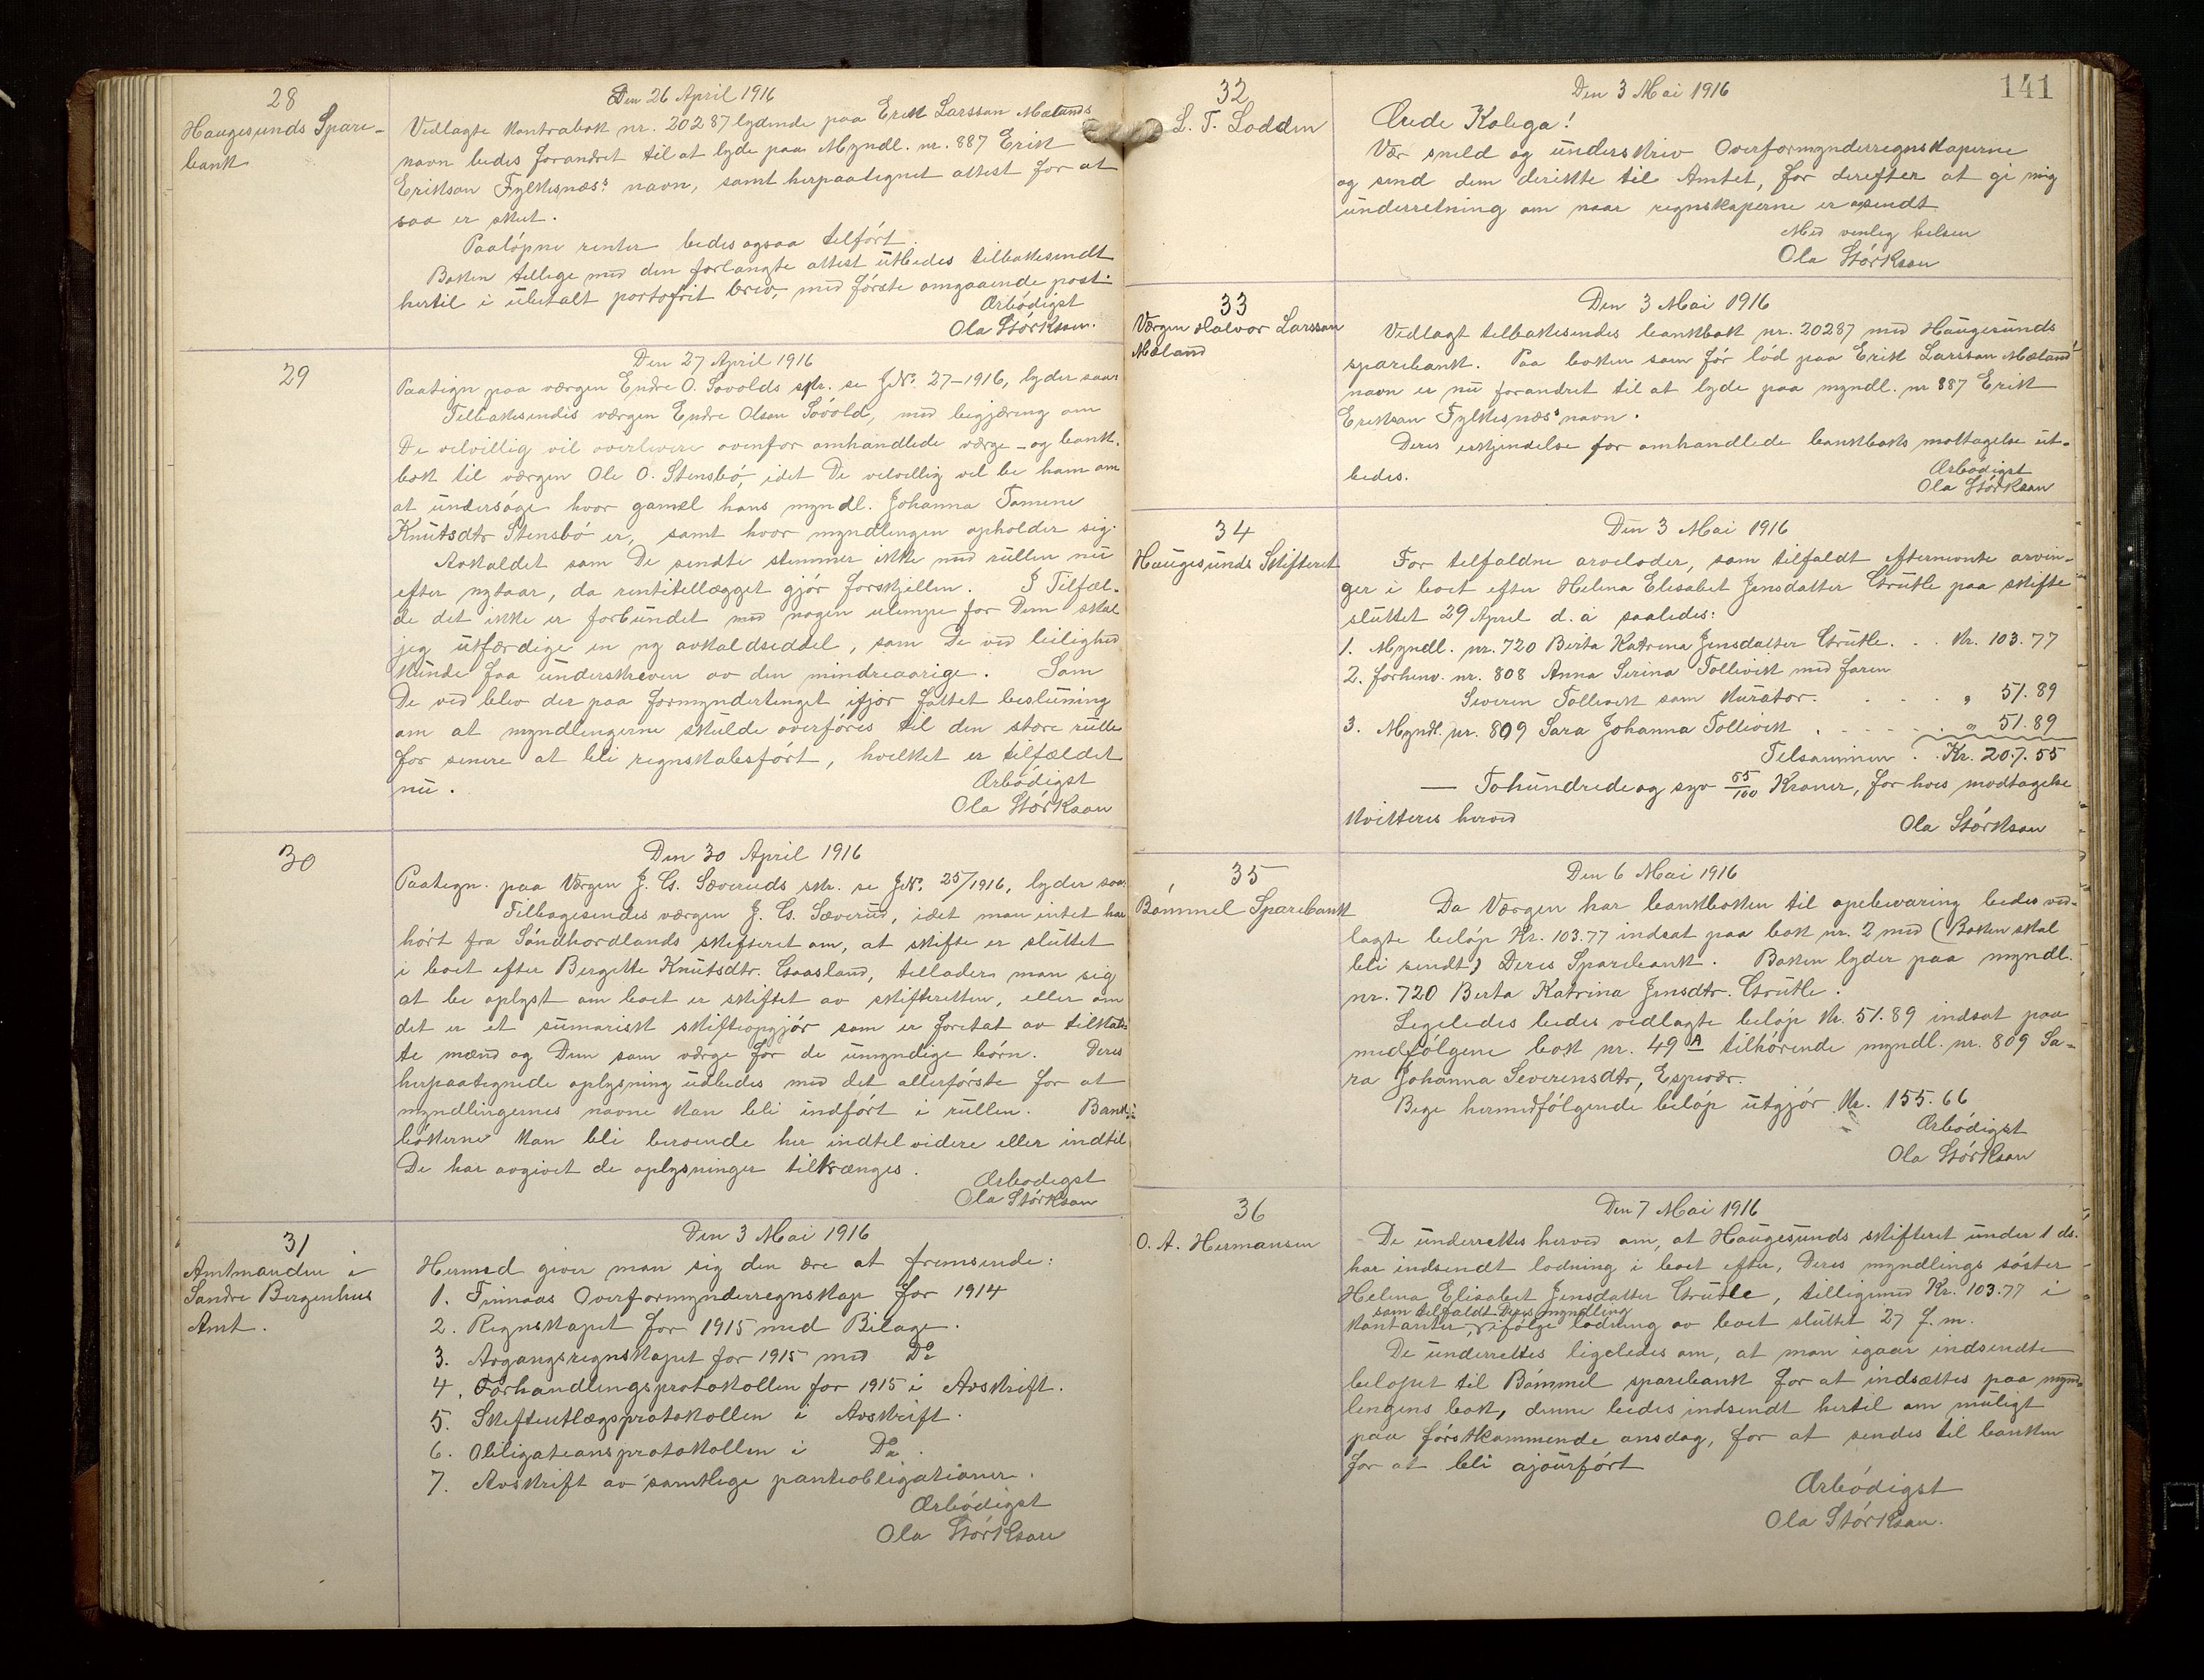 28
Haugesunds Spare-
bank
Den 26 April 1916
Vedlagte kontrabok nr. 20287 lydende paa Erik Larsson Mælands
navn bedes forandret til at lyde paa Myndl. nr. 887 Erik
Erikson Fylkesnæs's navn, samt herpaategnet attest for at
saa er sket.
Paaløpne renter bedes ogsaa tilført
Boken tillige med den forlangte attest utbedes tilbakesendt
hertil i ubetalt portofrit brev, med første omgaaende post.
Ærbødigst
Ola Størkson.
29
Den 27 April 1916
Paategn paa værgen Endre O. Løvolds skr. se JNo. 27-1916, lyder saa:
Tilbakesendes værgen Endre Olson Løvold, med begjæring om
De velvillig vil overlevere ovenfor omhandlede værge- og bank-
bok til værgen Ole O. Stensbø, idet De velvillig vil be ham om
at undersøge hvor gamel hans myndl. Johanna Tomine
Knutsdtr Stensbø er, samt hvor myndlingen opholder sig.
Avkaldet som De sendte stemmer ikke med rullen nu
efter nytaar, da rentetillægget gjør forskjellen. I Tilfæl-
de det ikke er forbundet med nogen ulempe for Dem skal
jeg utfærdige en ny avkaldseddel, som De ved leilighed
kunde faa underskreven av den mindreaarige. Som
De ved blev der paa formyndertinget ifjor fattet beslutning
om at myndlingerne skulde overføres til den store rulle
for senere at bli regnskabsført, hvilket er tilfældet
nu.
Ærbødigst
Ola Størkson
30
Den 30 April 1916
Paategn. paa Værgen J. G. Sæveruds skr. se JNo. 25/1916, lyder saa:
Tilbagesendes værgen J. G. Sæverud, idet man intet har
hørt fra Søndhordlands skifteret om, at skifte er sluttet
i boet efter Bergitte Knutsdtr. Gaasland, tillader man sig
at be oplyst om boet er skiftet av skifteretten, eller om
det er et sumarisk skifteopgjør som er foretat av tilkald-
te mænd og Dem som værge for de umyndige børn. Deres
herpaategnede oplysning udbedes med det allerførste for at
myndlingernes navne kan bli indført i rullen. Bank-
bøkerne kan bli beroende her indtil videre eller indtil
De har avgivet de oplysninger tiltrænges.
Ærbødigst
Ola Størkson
31
Amtmanden i
Søndre Bergenhus
Amt.
Den 3 Mai 1916
Hermed giver man sig den ære at fremsende:
1. Finnaas Overformynderregnskap for 1914
2. Regnskapet for 1915 med Bilage.
3. Avgangsregnskapet for 1915 med Do
4. Forhandlingsprotokollen for 1915 i Avskrift.
5. Skifteutlægsprotokollen i Avskrift.
6. Obligationsprotokollen i Do.
7. Avskrift av samtlige panteobligationer.
Ærbødigst
Ola Størkson
141
32
L. T. Lodden
Den 3 Mai 1916
Ærede Kolega!
Vær snild og underskriv Overformynderregnskaperne
og send dem direkte til Amtet, for derefter at gi mig
underretning om naar regnskaperne er avsendt
Med venlig helsen
Ola Størkson
33
Værgen Halvor Larsson
Mæland
Den 3 Mai 1916
Vedlagt tilbakesendes bankbok nr. 20287 med Haugesunds
sparebank. Paa boken som før lød paa Erik Larsson Mælands
navn er nu forandret til at lyde paa myndl. nr 887 Erik
Erikson Fylkesnæs's navn.
Deres erkjendelse for omhandlede bankboks mottagelse ut-
bedes.
Ærbødigst
Ola Størkson
34
Haugesunds Skifteret
Den 3 Mai 1916
For tilfaldne arvelodder, som tilfaldt efternevnte arvin-
ger i boet efter Helena Elisabet Jensdatter Grutle paa skifte
sluttet 29 April d. å saaledes:
1. Myndl. nr. 720 Berta Katrina Jensdatter Grutle. . . Kr. 103.77
2. forhenv. nr. 808 Anna Serina Tollevik med faren
Severin Tollevik som kurator. . . . . „ 51.89
3. Myndl. nr. 809 Sara Johanna Tollevik . . . . . „ 51.89
Tilsammen . . Kr. 207.55
— Tohundrede og syv 55/100 Kroner, for hvis modtagelse
kvitteres herved
Ola Størkson
35
Bømmel Sparebank
Den 6 Mai 1916
Da Værgen har bankboken til opbevaring bedes ved-
lagte beløp Kr. 103.77 indsat paa bok nr. 2 med (Boken skal
bli sendt) Deres Sparebank. Boken lyder paa myndl.
nr. 720 Berta Katrina Jensdtr. Grutle.
Ligeledes bedes vedlagte beløp Kr. 51.89 indsat paa
medfølgene bok nr. 49 A tilhørende myndl. nr. 809 Sa-
ra Johanna Severinsdtr, Espevær.
Bege hermedfølgende beløp utgjør Kr. 155.66
Ærbødigst
Ola Størkson
36
O. A. Hermansen
Den 7 Mai 1916
De underrettes herved om, at Haugesunds skifteret under 1 ds.
har indsendt lodning i boet efter, Deres myndlings søster
Helena Elisabet Jensdatter Grutle, tilligemed Kr. 103.77 i
som tilfaldt Deres myndling
kontanter, ifølge lodning av boet sluttet 27 f. m.
De underrettes ligeledes om, at man igaar indsendte
beløpet til Bømmel sparebank for at indsættes paa mynd-
lingens bok, denne bedes indsendt hertil om muligt
paa førstkommende onsdag, for at sendes til banken
for at bli ajourført
Ærbødigst
Ola Størkson.